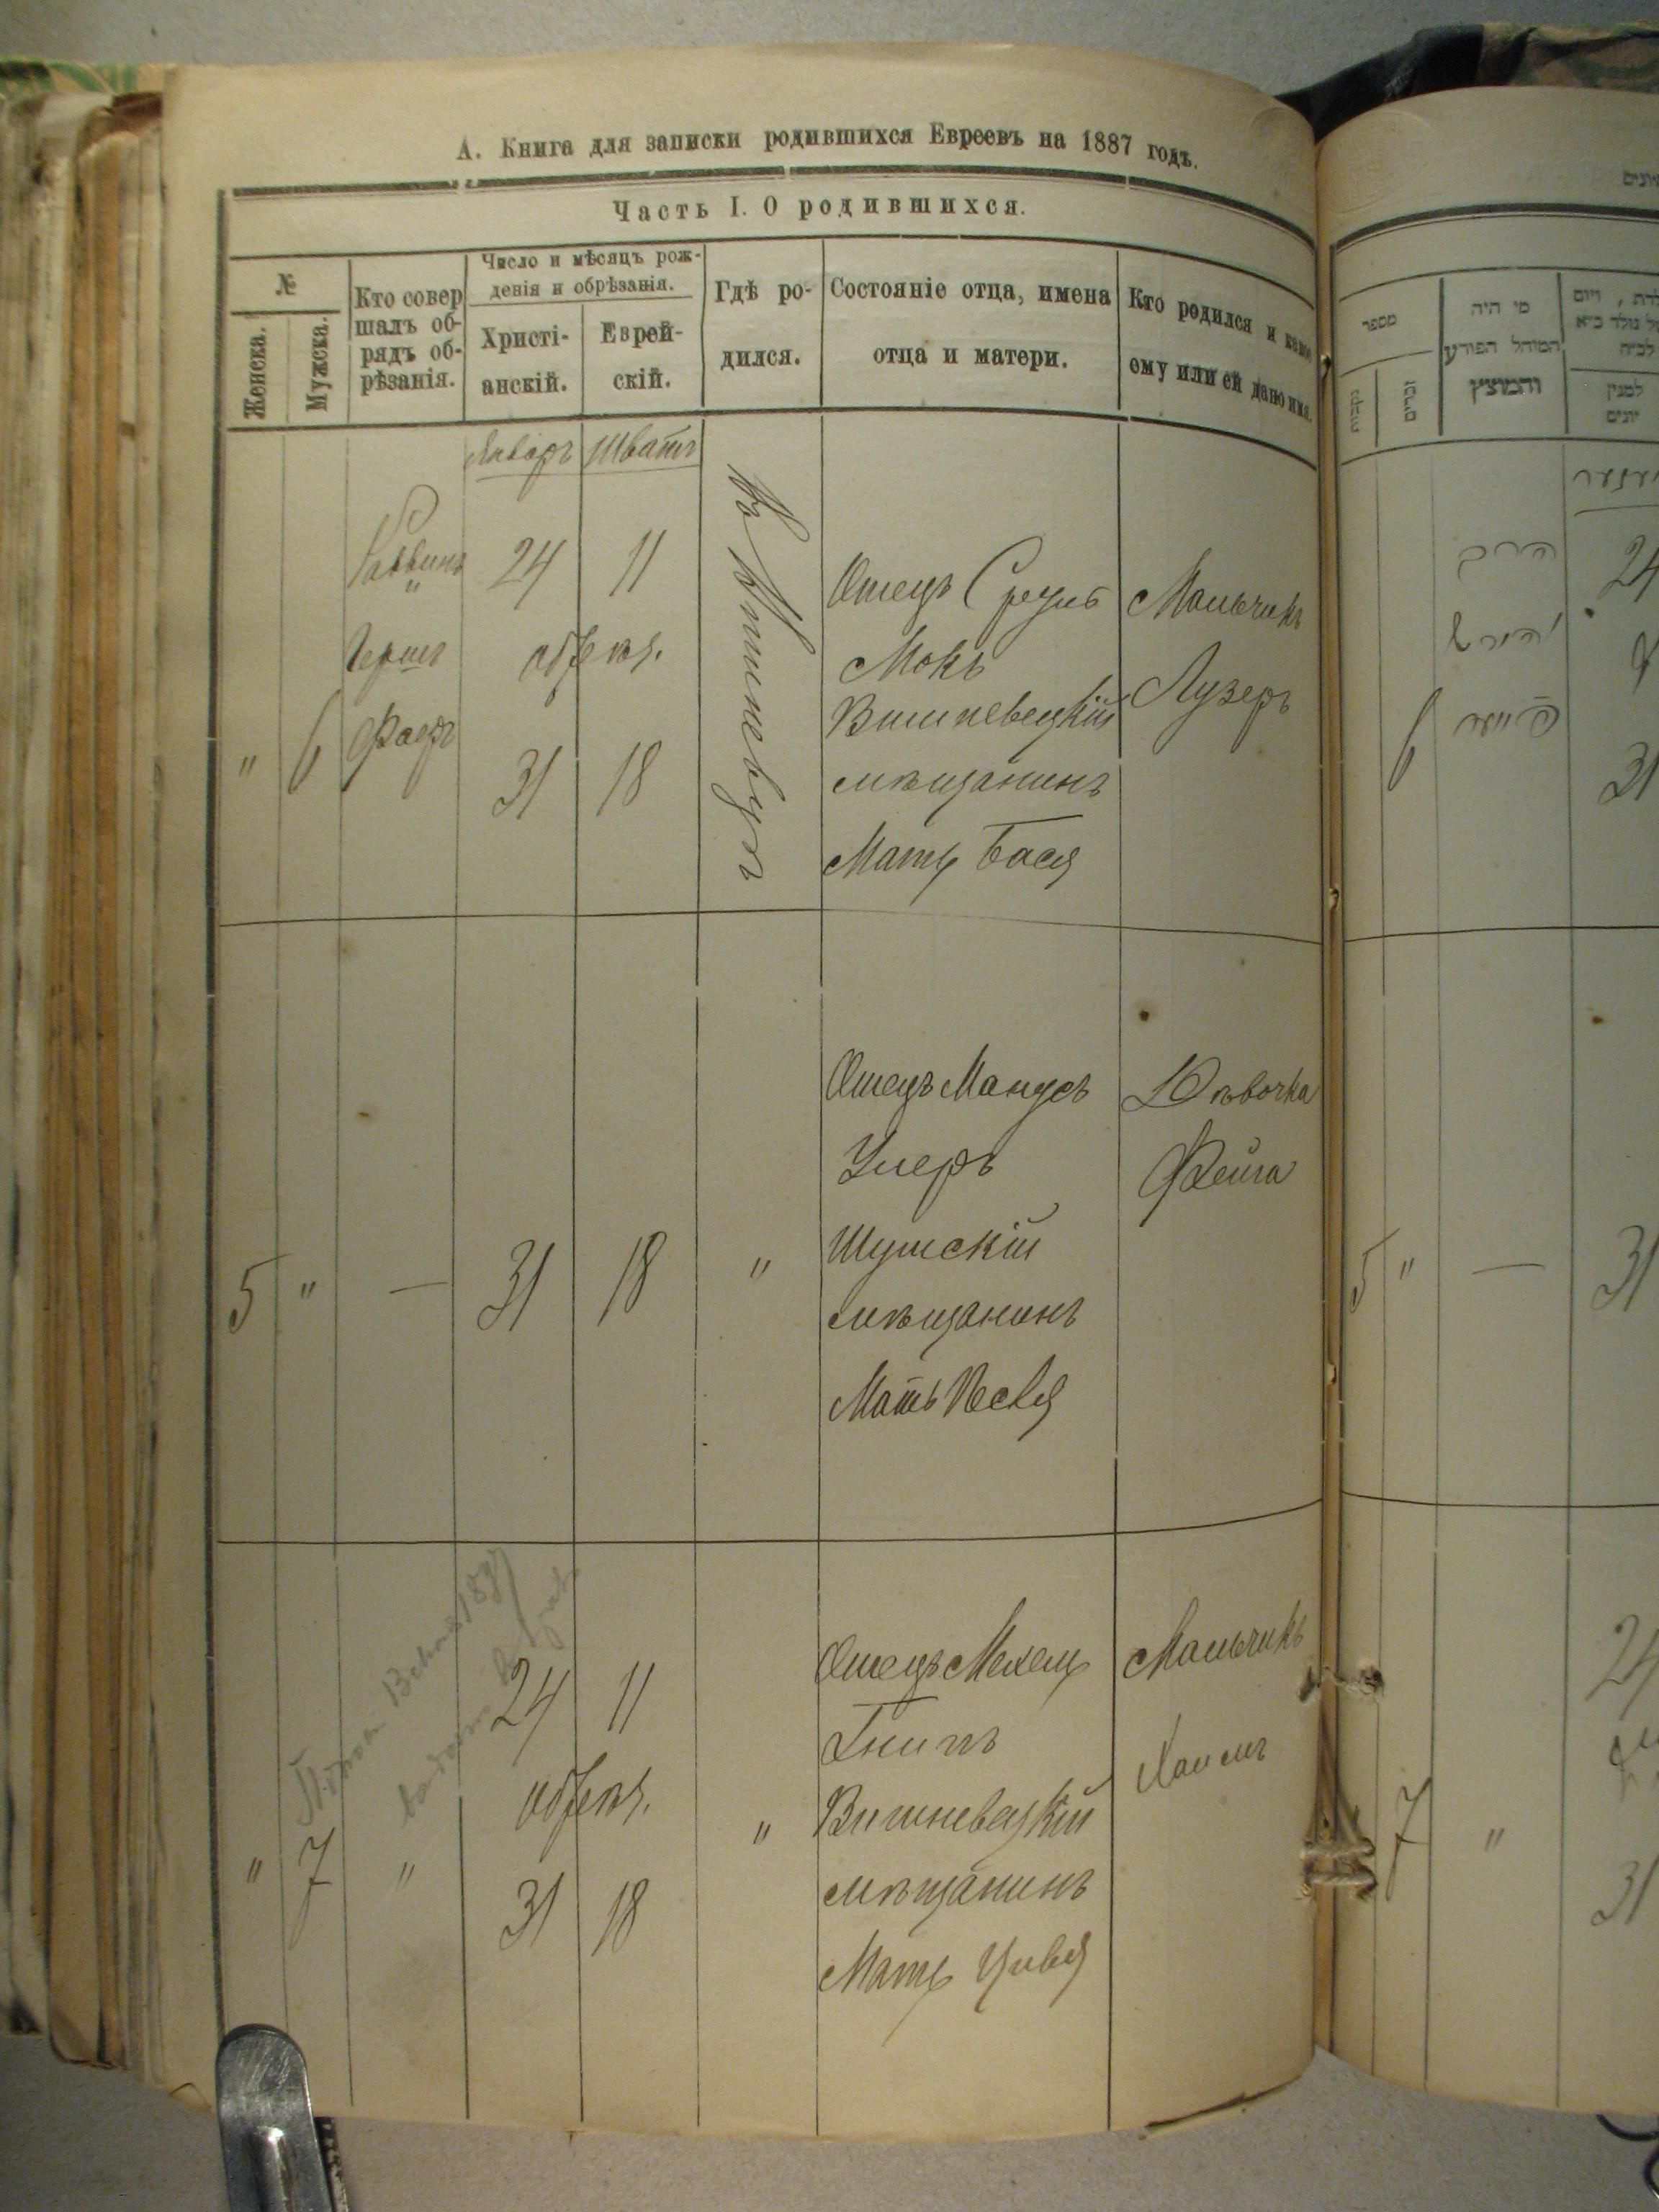 А. Книга для записки родившихся Евреевъ на 1887 годъ.
Часть I. О родившихся.
№
Женска.
Мужска.
Кто совер
шалъ об-
рядъ об-
рѣзанія.
Число и мѣсяцъ рож-
денія и обрѣзанія.
Христі-
анскій.
Еврей-
скій.
Гдѣ ро-
дился.
Состояніе отца, имена
отца и матери.
Кто родился и какое
ему или ей дано имя.
Январь Шватъ
" 6
Раввинъ
"
Гершъ
Фаеръ
24 11
обрѣз.
31 18
Въ Вишневцѣ
Отецъ
Мокъ
Вишневецкій
мѣщанинъ
Мать Бася
Мальчикъ
Лузеръ
5 " — 31 18 "
Отецъ Манусъ
Шумскій
мѣщанинъ
Мать Песя
Дѣвочка
Фейга
" 7 "
24 11
обрѣз.
31 18
"
Отецъ Мехель
Вишневецкій
мѣщанинъ
Мать Цивя
Мальчикъ
Хаимъ
מספר
נקבות
זכרים
מי היה
המוהל הפורע
והמוצץ
למנין
יונים
יענער
הרב
הירש
6
24
31
5 " — 31
7 "
24
31